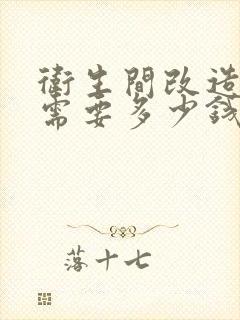 衛生間改造
需要多少錢
落十七